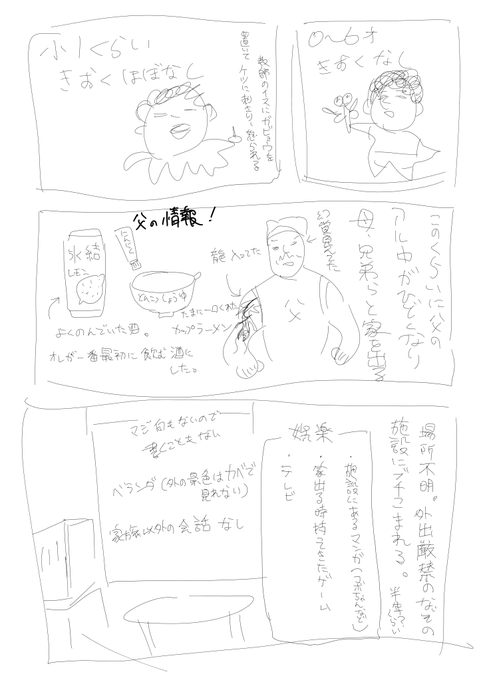 0〜6才
きおくなし
小1くらい
きおくほぼなし
教師のイスにガビョウを
置いてケツに刺さり、怒られる
このくらいに父の
アル中がひどくなり
母、兄弟らと家を出る
幻覚見てた
父
龍入ってた
父の情報!
にんにく
氷結
レモン
とんこつしょうゆ
たまに一口くれた
カップラーメン
よくのんでいた酒。
オレが一番最初に飲む酒に
した。
場所不明。外出厳禁のなぞの
施設にブチこまれる。
半年?くらい
娯楽
・施設にあるマンガ(コボちゃんなど)
・家出る時持ってきたゲーム
・テレビ
マジ何もないので
書くこともない
ベランダ(外の景色はカベで
見れない)
家族以外の会話なし